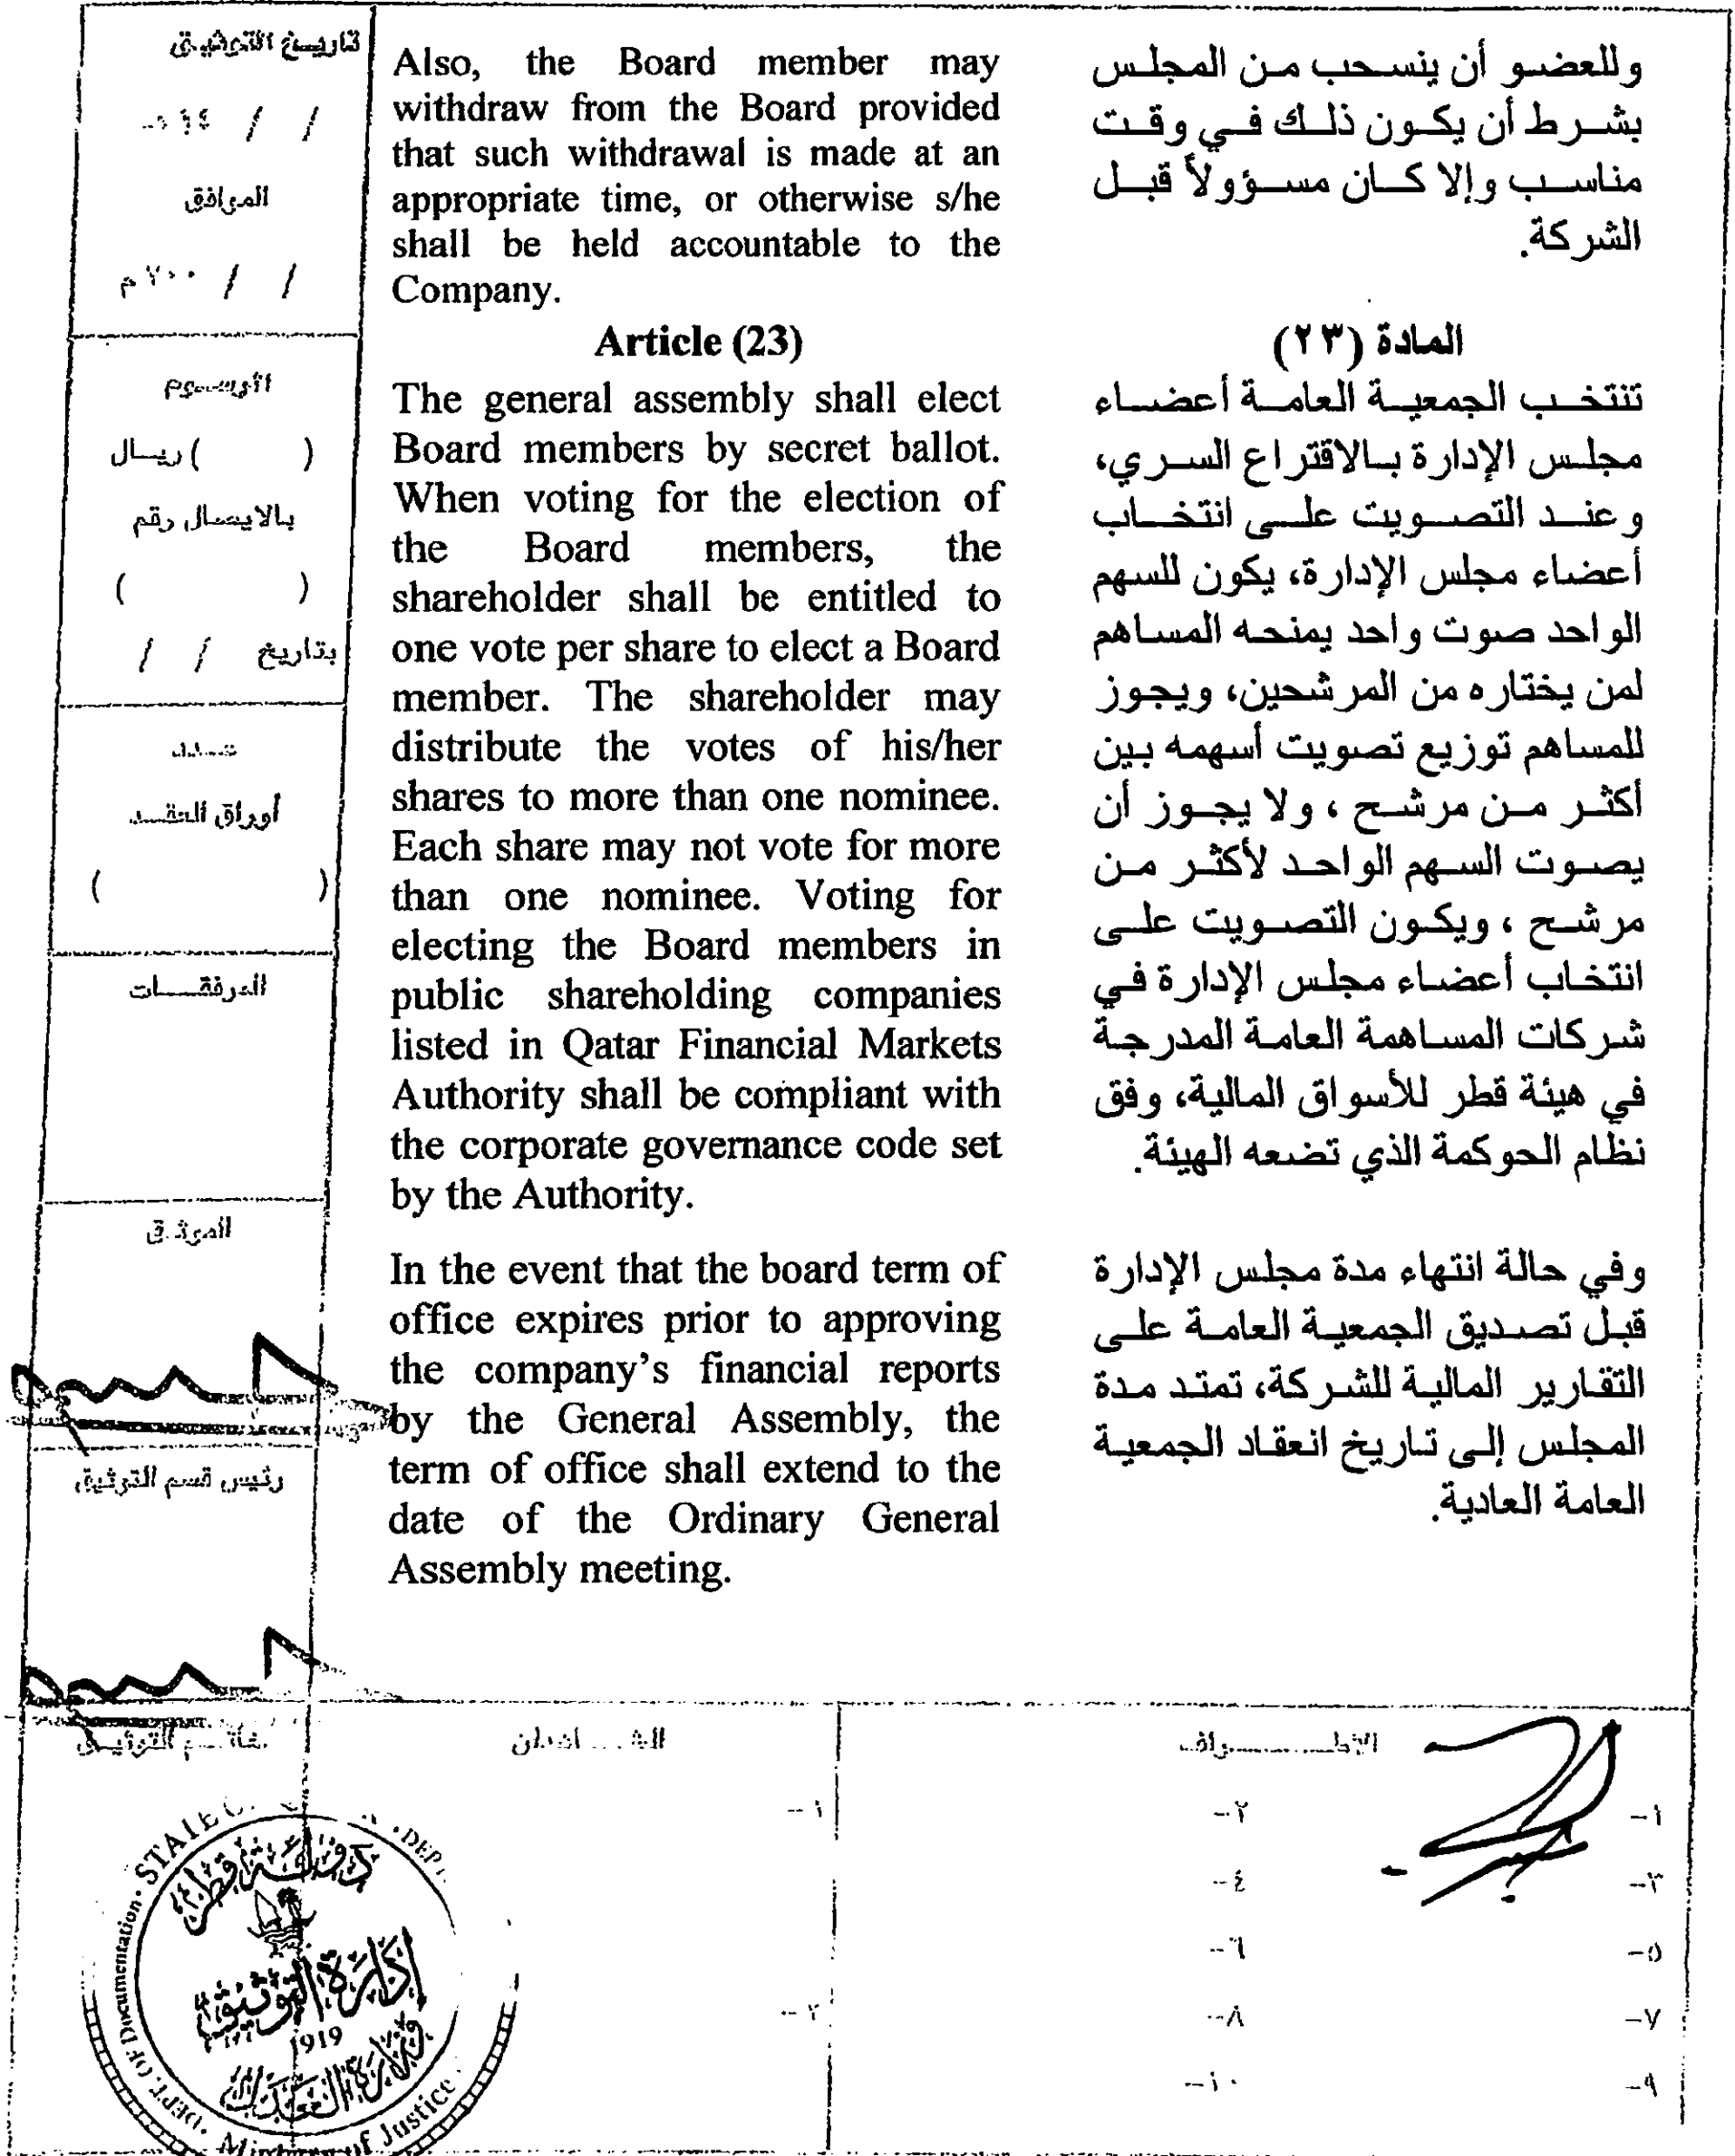 تاريخ التوثيق
/ / ١٤ هـ
الموافق
/ / ٢٠٠ م
الرسوم
( ) ريال
بالايصال رقم
( )
بتاريخ / /
عدد
أوراق العقد
( )
المرفقات
الموثق
رئيس قسم التوثيق
Also, the Board member may
withdraw from the Board provided
that such withdrawal is made at an
appropriate time, or otherwise s/he
shall be held accountable to the
Company.
Article (23)
The general assembly shall elect
Board members by secret ballot.
When voting for the election of
the Board members, the
shareholder shall be entitled to
one vote per share to elect a Board
member. The shareholder may
distribute the votes of his/her
shares to more than one nominee.
Each share may not vote for more
than one nominee. Voting for
electing the Board members in
public shareholding companies
listed in Qatar Financial Markets
Authority shall be compliant with
the corporate governance code set
by the Authority.
In the event that the board term of
office expires prior to approving
the company's financial reports
by the General Assembly, the
term of office shall extend to the
date of the Ordinary General
Assembly meeting.
وللعضو أن ينسحب من المجلس
بشرط أن يكون ذلك في وقت
مناسب وإلا كان مسؤولاً قبل
الشركة.
المادة (٢٣)
تنتخب الجمعية العامة أعضاء
مجلس الإدارة بالاقتراع السري،
وعند التصويت على انتخاب
أعضاء مجلس الإدارة، يكون للسهم
الواحد صوت واحد يمنحه المساهم
لمن يختاره من المرشحين، ويجوز
للمساهم توزيع تصويت أسهمه بين
أكثر من مرشح ، ولا يجوز أن
يصوت السهم الواحد لأكثر من
مرشح ، ويكون التصويت على
انتخاب أعضاء مجلس الإدارة في
شركات المساهمة العامة المدرجة
في هيئة قطر للأسواق المالية، وفق
نظام الحوكمة الذي تضعه الهيئة.
وفي حالة انتهاء مدة مجلس الإدارة
قبل تصديق الجمعية العامة على
التقارير المالية للشركة، تمتد مدة
المجلس إلى تاريخ انعقاد الجمعية
العامة العادية.
الأطراف
١-
٢-
٣-
٤-
٥-
٦-
٧-
٨-
٩-
١٠-
الشاهدان
١-
٢-
خاتم التوثيق
دولة قطر
إدارة التوثيق
1919
وزارة العدل
DEPT. OF Documentation. STATE
Ministry of Justice